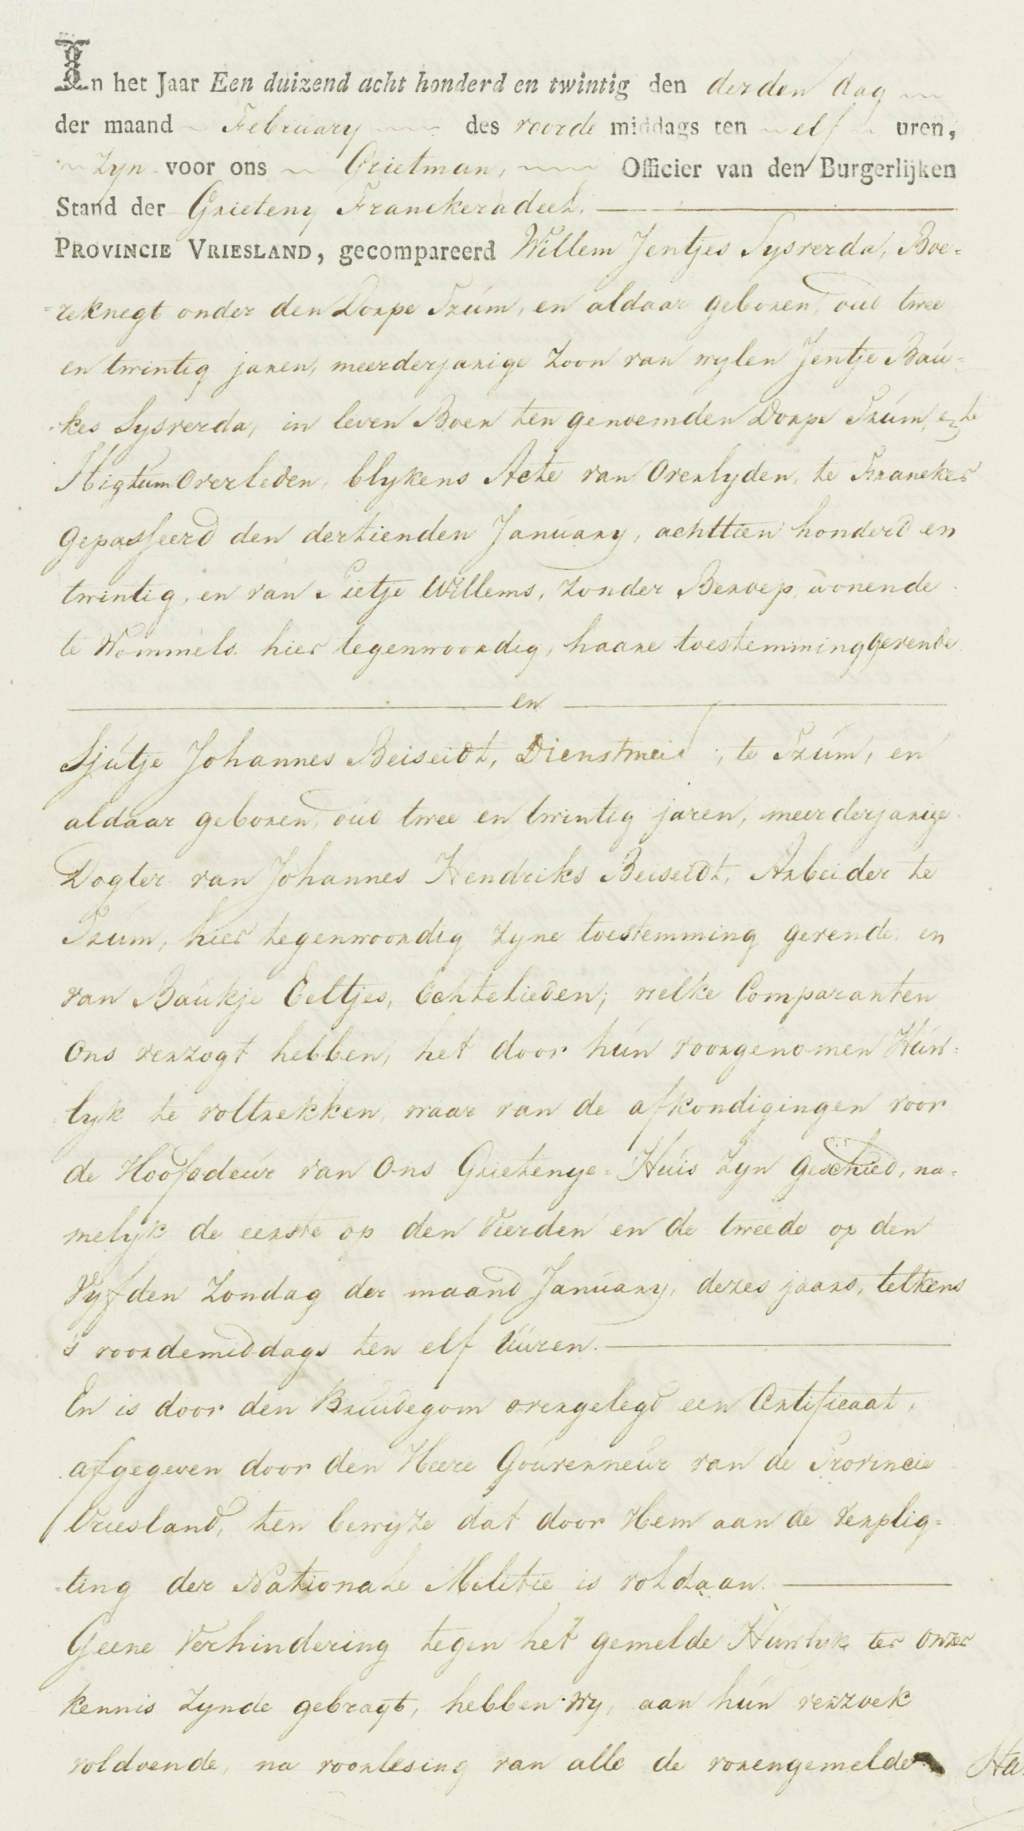 In het Jaar Een duizend acht honderd en twintig den derden dag
der maand February des voorde middags ten elf uren,
zyn voor ons Grietman, Officier van den Burgerlijken
Stand der Grieteny Franckeradeel.
PROVINCIE VRIESLAND, gecompareerd Willem Jentjes Sysverda, Boe-
reknegt onder den Dorpe Tzúm, en aldaar geboren, oud twee
en twintig jaren, meerderjarige Zoon van wylen Jentje Baú-
kes Sysverda, in leven Boer ten genoemden Dorpe Tzúm, en te
Higtum overleden, blykens Acte van Overlyden, te Franeker
gepasseerd den dertienden January, achttien honderd en
twintig, en van Pietje Willems, zonder Beroep, wonende
te Wommels hier tegenwoordig, haare toestemming gevende
en
Sjútje Johannes Beiseidt, Dienstmeid, te Tzúm, en
aldaar geboren, oud twee en twintig jaren, meerderjarige
Dogter van Johannes Hendriks Beiseidt, Arbeider te
Tzúm, hier tegenwoordig zyne toestemming gevende en
van Baukje Eeltjes, Echtelieden; welke Comparanten
Ons verzogt hebben, het door hún voorgenomen Húw-
lyk te voltrekken, waar van de afkondigingen voor
de Hoofddeur van Ons Grietenye-Húis zyn geschied, na-
melyk de eerste op den Vierden en de tweede op den
Vyfden Zondag der maand January, dezes jaars, telkens
's voordemiddags ten elf Uúren.
En is door den Bruidegom overgelegd een Certificaat,
afgegeven door den Heere Goúverneúr van de Provincie
Vriesland, ten bewyze dat door Hem aan de verplig-
ting der Nationale Militie is voldaan.
Geene Verhindering tegen het gemelde Húwlyk ter onzer
kennis zynde gebragt, hebben wy, aan hún verzoek
voldoende, na voorlesing van alle de vorengemelde